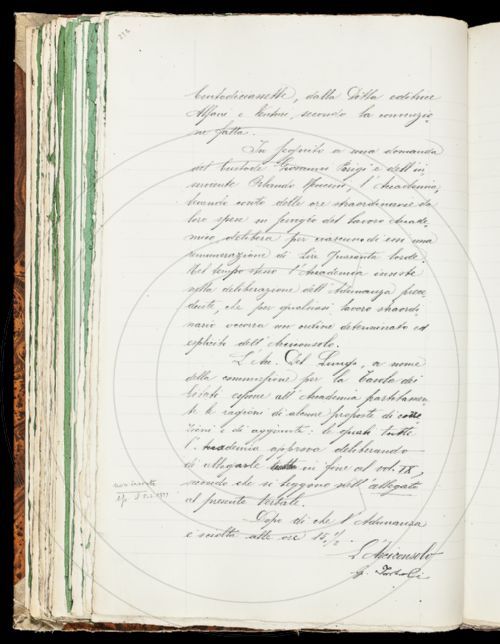 Centodiciassette, dalla Ditta editrice
Alfani e Venturi, secondo la convenzio-
ne fatta.
In seguito a una domanda
del Custode Giovanni Parigi e dell'in-
serviente Orlando, l'Accademia,
tenendo conto delle ore straordinarie da
loro spese in servigio del lavoro Accade-
mico delibera per ciascuno di essi una
remunerazione di Lire Quaranta lorde.
Nel tempo stesso l'Accademia insiste
nella deliberazione dell'Adunanza prece-
dente, che per qualsiasi lavoro straordi-
nario occorra un ordine determinato ed
esplicito dell'Arciconsolo.
L'Acc. Del Lungo, a nome
della commissione per la Tavola dei
Citati espone all'Accademia partitamen-
te le ragioni di alcune proposte di corre-
zioni e di aggiunte: le quali tutte
l'Accademia approva deliberando
di allegarle in fine al vol. IX,
secondo che si leggono nell'allegato
al presente Verbale.
Dopo di che l'Adunanza
è sciolta alle ore 15 1/2.
L'Arciconsolo
non inserito